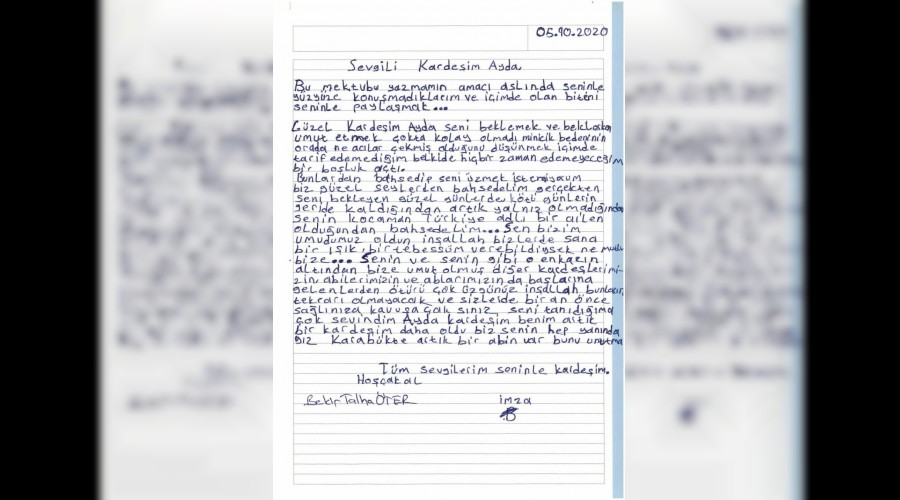 05.10.2020
Sevgili Kardeşim Ayda
Bu mektubu yazmamın amacı aslında seninle
yüzyüze konuşmadıklarım ve içimde olan biteni
seninle paylaşmak...
Güzel Kardeşim Ayda seni beklemek ve beklerken
umut etmek çokta kolay olmadı minicik bedeninin
orada ne acılar çekmiş olduğunu düşünmek içimde
tarif edemediğim belkide hiçbir zaman edemeyeceğim
bir boşluk açtı.
Bunlardan bahsedip seni üzmek istemiyorum
biz güzel şeylerden bahsedelim gerçekten
seni bekleyen güzel günlerde kötü günlerin
geride kaldığından artık yalnız olmadığından
senin kocaman Türkiye adlı bir ailen
olduğundan bahsedelim... Sen bizim
umudumuz oldun inşallah bizlerde sana
bir ışık, bir tebessüm verebildiysek ne mutlu
bize... Senin ve senin gibi o enkazın
altından bize umut olmuş diğer kardeşlerimi-
zin abilerimizin ve ablarımızın da başlarına
gelenlerden ötürü çok üzgünüz inşallah bunların
tekrarı olmayacak ve sizlerde bir an önce
sağlınıza kavuşacaksınız, seni tanıdığıma
çok sevindim Ayda kardeşim benim artık
bir kardeşim daha oldu biz senin hep yanında
yız Karabükte artık bir abin var bunu unutma
Tüm sevgilerim seninle kardeşim.
Hoşçakal
Bekir Talha ÖTER
imza